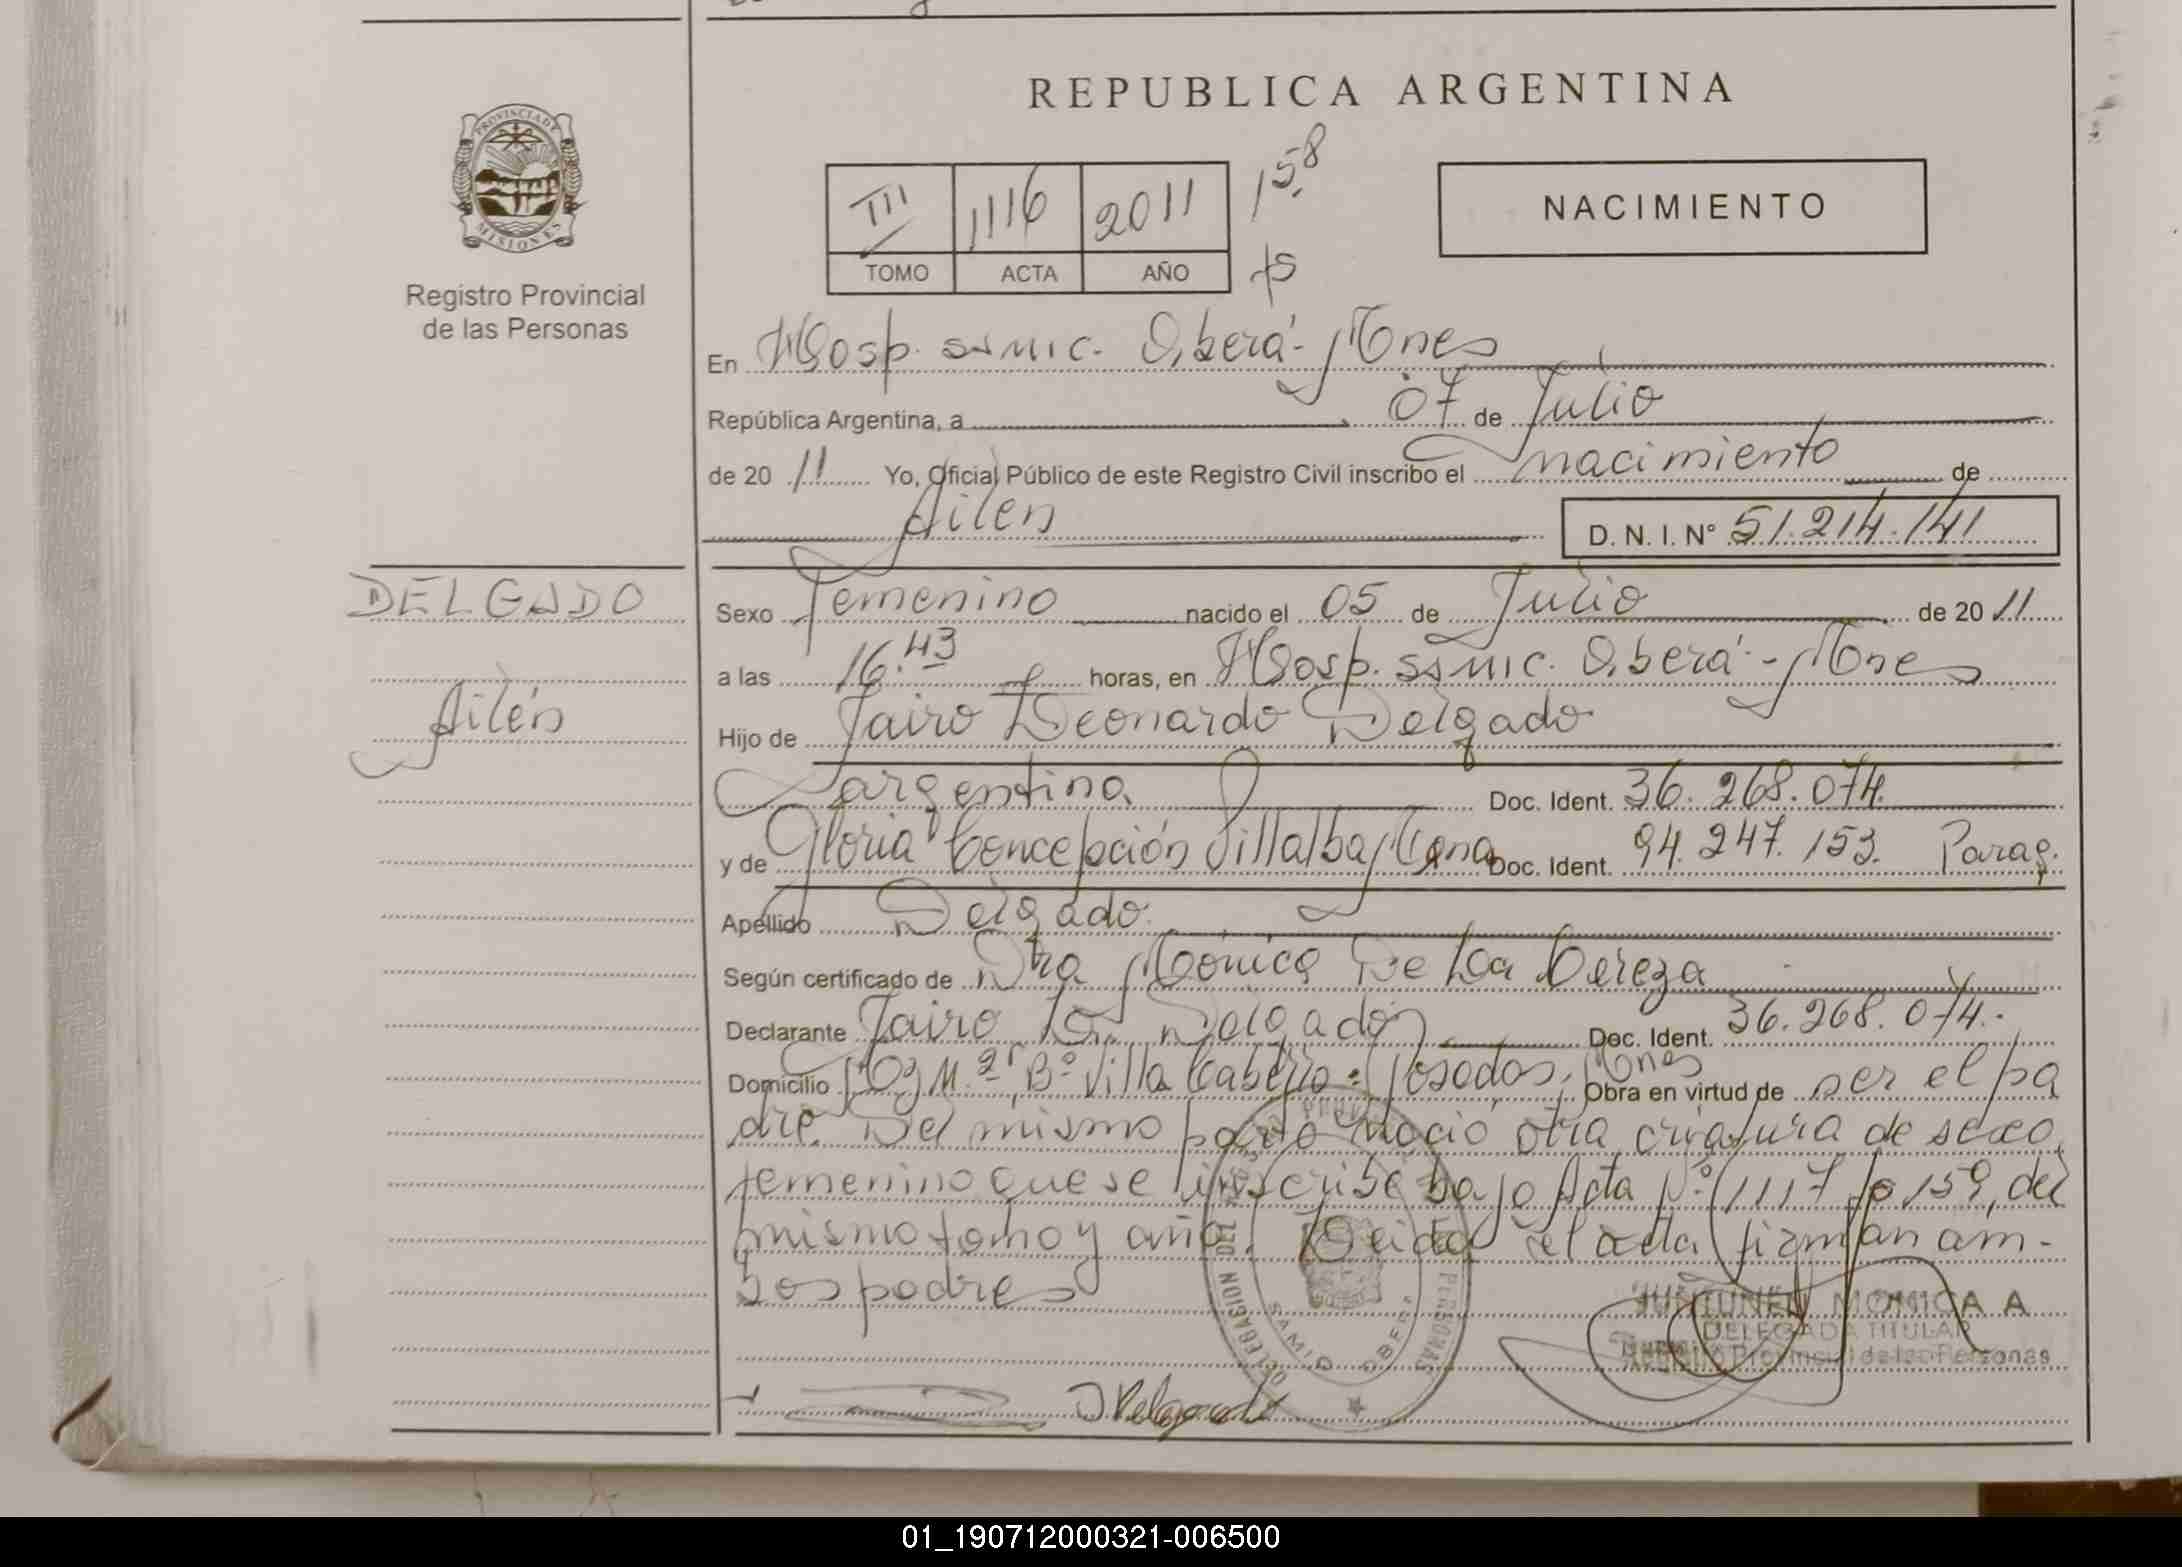 REPUBLICA ARGENTINA
PROVINCIA DE
MISIONES
Registro Provincial
de las Personas
III 1116 2011 158
TOMO ACTA AÑO
NACIMIENTO
En Hosp. SAMIC. Oberá - Mnes
República Argentina, a 07 de Julio
de 20 11 Yo, Oficial Público de este Registro Civil inscribo el nacimiento de
Ailén
D. N. I. Nº 51.214.141
DELGADO
Ailén
Sexo Femenino nacido el 05 de Julio de 20 11
a las 16.43 horas, en Hosp. SAMIC. Oberá - Mnes
Hijo de Jairo Leonardo Delgado
argentina Doc. Ident. 36.268.074.
y de Gloria Concepción Villalba Doc. Ident. 94.247.153. Parag.
Apellido Delgado
Según certificado de Dra Mónica De La Cereza
Declarante Jairo L. Delgado Doc. Ident. 36.268.074.
Domicilio Bº Villa Cabello - Posadas, Mnes Obra en virtud de ser el pa
dre. Del mismo parto nació otra criatura de sexo
femenino que se inscribe bajo Acta Nº 1117 fº 159, del
mismo tomo y año. Leída el acta firman am-
bos padres
JUNTUNEN MONICA A
DELEGADA TITULAR
Registro Provincial de las Personas
J Delgado
DELEGACION DEL REGISTRO PROVINCIAL DE LAS PERSONAS
SAMIC OBERA
01_190712000321-006500